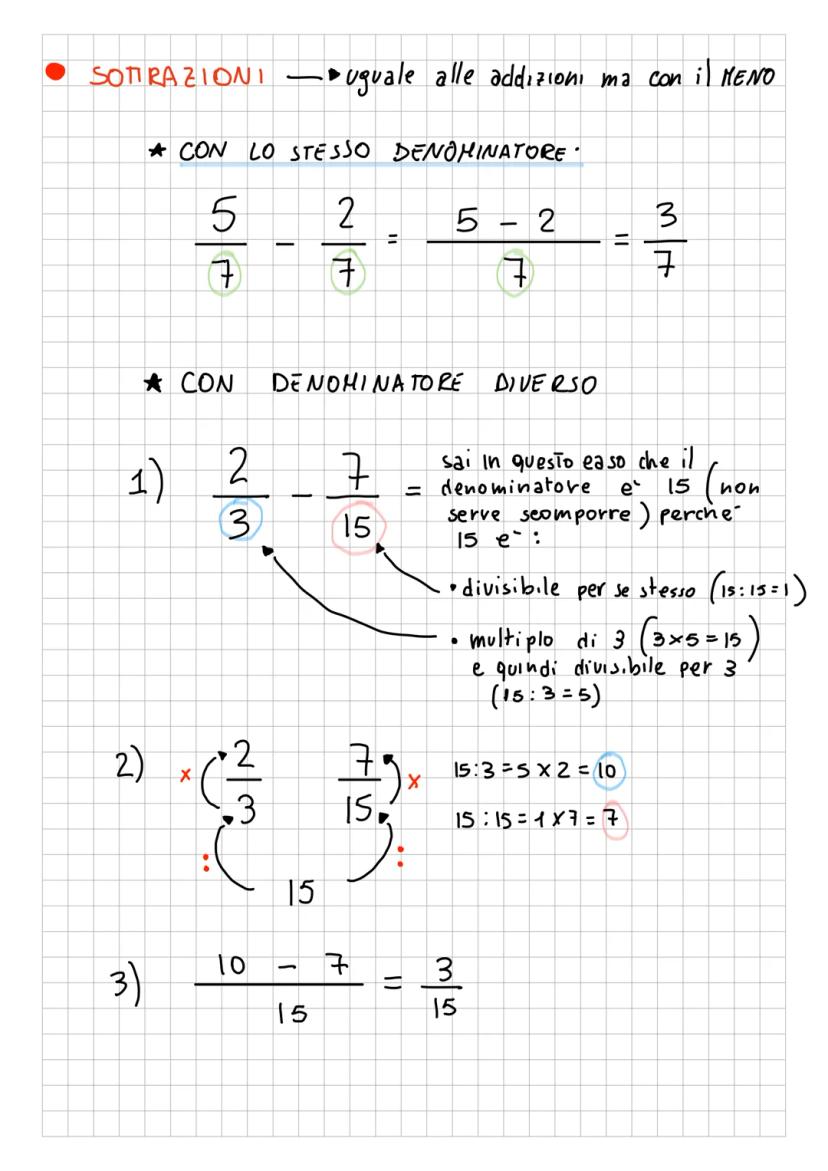 ● SOTTRAZIONI → uguale alle addizioni ma con il MENO
★ CON LO STESSO DENOMINATORE:
5/7 - 2/7 = (5 - 2)/7 = 3/7
★ CON DENOMINATORE DIVERSO
1) 2/3 - 7/15 =
sai in questo caso che il
denominatore e` 15 (non
serve scomporre) perche`
15 e` :
• divisibile per se stesso (15:15=1)
• multiplo di 3 (3×5=15)
e quindi divisibile per 3
(15:3=5)
2) × 2/3 7/15 ×
15:3=5×2=10
15:15=1×7=7
: 15 :
3) (10 - 7)/15 = 3/15